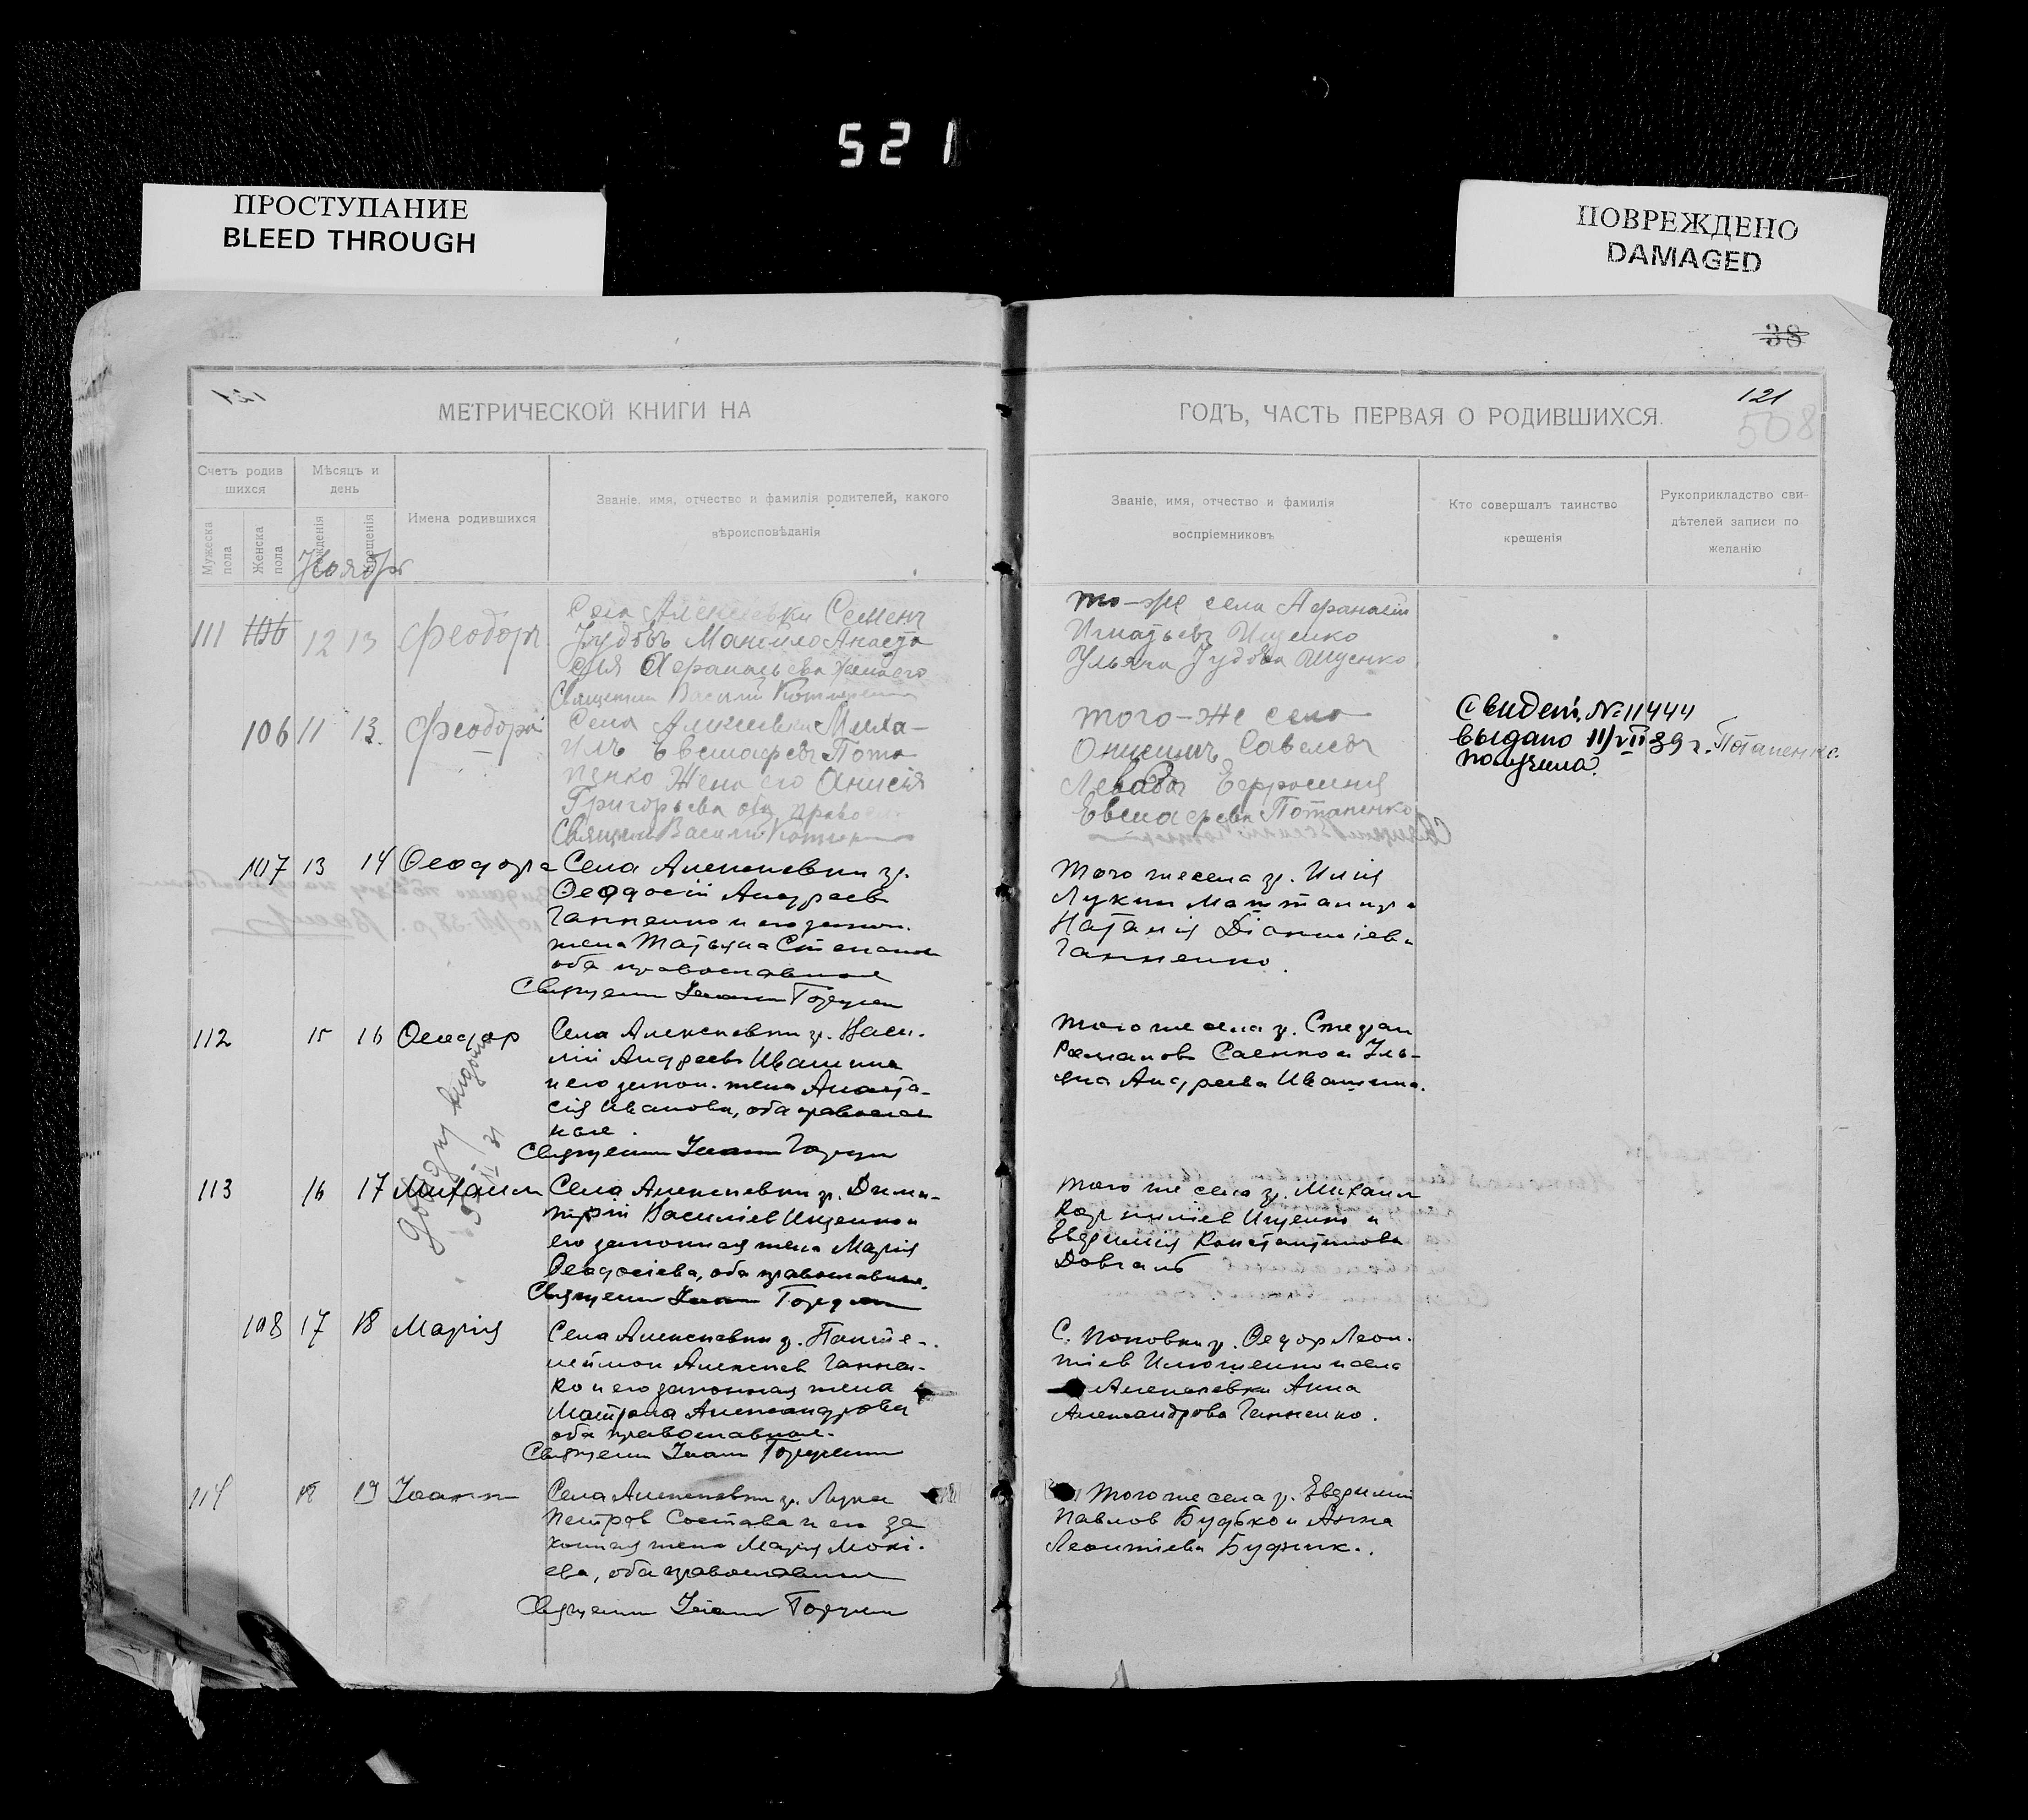 521
ПРОСТУПАНИЕ
BLEED THROUGH
ПОВРЕЖДЕНО
DAMAGED
38
121
508
МЕТРИЧЕСКОЙ КНИГИ НА
ГОДЪ, ЧАСТЬ ПЕРВАЯ О РОДИВШИХСЯ.
Счетъ родив
шихся
Мужеска
пола
Женска
пола
Мѣсяцъ и
день
рожденія
крещенія
Имена родившихся
Званіе, имя, отчество и фамилія родителей, какого
вѣроисповѣданія
Званіе, имя, отчество и фамилія
воспріемниковъ
Кто совершалъ таинство
крещенія
Рукоприкладство сви-
дѣтелей записи по
желанію
Ноябрь
111 106 12 13 Феодоръ
Села Алексѣевки Семенъ
Іудовъ Манойло Анаста
сия Афанасьева
Священник Василий
то-же села Афанасий
Игнатьевъ Ищенко
Ульяна Іудова Ищенко
106 11 13. Феодора
Села Алексѣевки Миха-
илъ Евстафьевъ Пота
пенко Жена его Анисія
Григорьева оба право
Священ Василий
того-же села
Онисимъ Савельевъ
Левада Ефросиния
Евстафьева Потапенко
Свидет. № 11444
выдано 11/VII 39 г. Потапенко.
получила.
107 13 14 Ѳеодора
Села Алексеевки гр.
Ѳеодосий Андреев
Ганненко и его закон.
жена Татьяна Степанов
оба православные
Священник Иоанн
Того же села гр. Илия
Лукин
Наталия Діонисіева
Ганненко.
112 15 16 Ѳеодор
Села Алексеевки гр. Васи-
лий Андреев Ивашина
и его закон. жена Анаста-
сия Иванова, оба православ
ные.
Священник Иоанн
Того же села гр. Стефан
Романов Саенко и Уль-
яна Андреева Ивашина.
113 16 17 Михаил
Села Алексеевки гр. Дими-
трий Василіев Ищенко и
его законная жена Мария
Ѳеодосіева, оба православные.
Священник Иоанн
Того же села гр. Михаил
Корнилиев Ищенко и
Евдокия Константинова
Довгаль
108 17 18 Мария
Села Алексеевки гр. Панте-
леймон Алексеев Ганнен-
ко и его законная жена
Матрона Александрова
оба православные.
Священник Иоанн
С. Поповки гр. Ѳеодор Леон-
тіев и села
Алексеевки Анна
Александрова Ганненко.
114 18 19 Иоанн
Села Алексеевки гр. Лука
Петров Состава и его за
конная жена Мария Моки-
ева, оба православные
Священник Иоанн
Того же села гр. Евфимий
Павлов Будько и Анна
Леонтіева Будник.